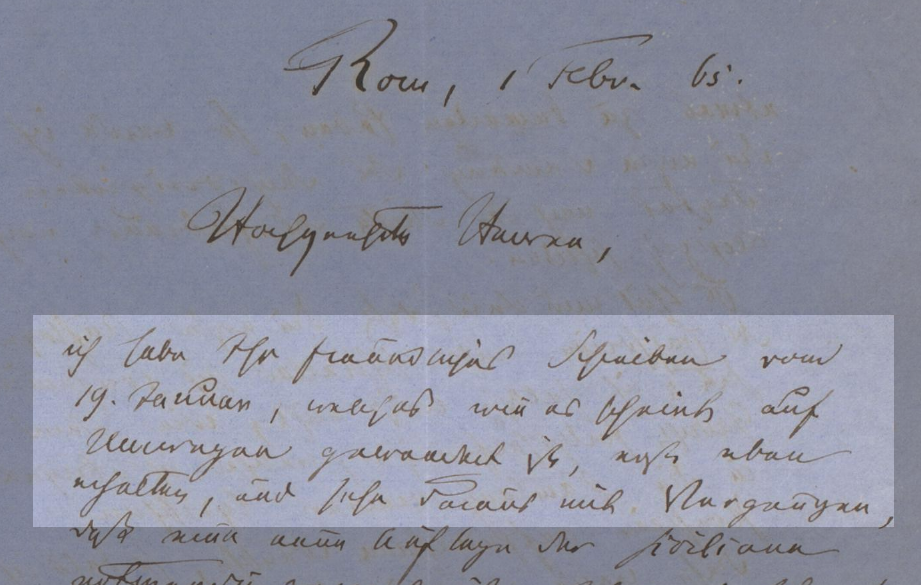 Rom, 1 Febr. 65.
Hochgeehrte Herren,
ich habe Ihr freundliches Schreiben vom
19. Januar, welches wie es scheint auf
Umwegen gewandert ist, erst eben
erhalten, und sehe daraus mit Vergnügen,
daß eine neue Auflage der Siciliana